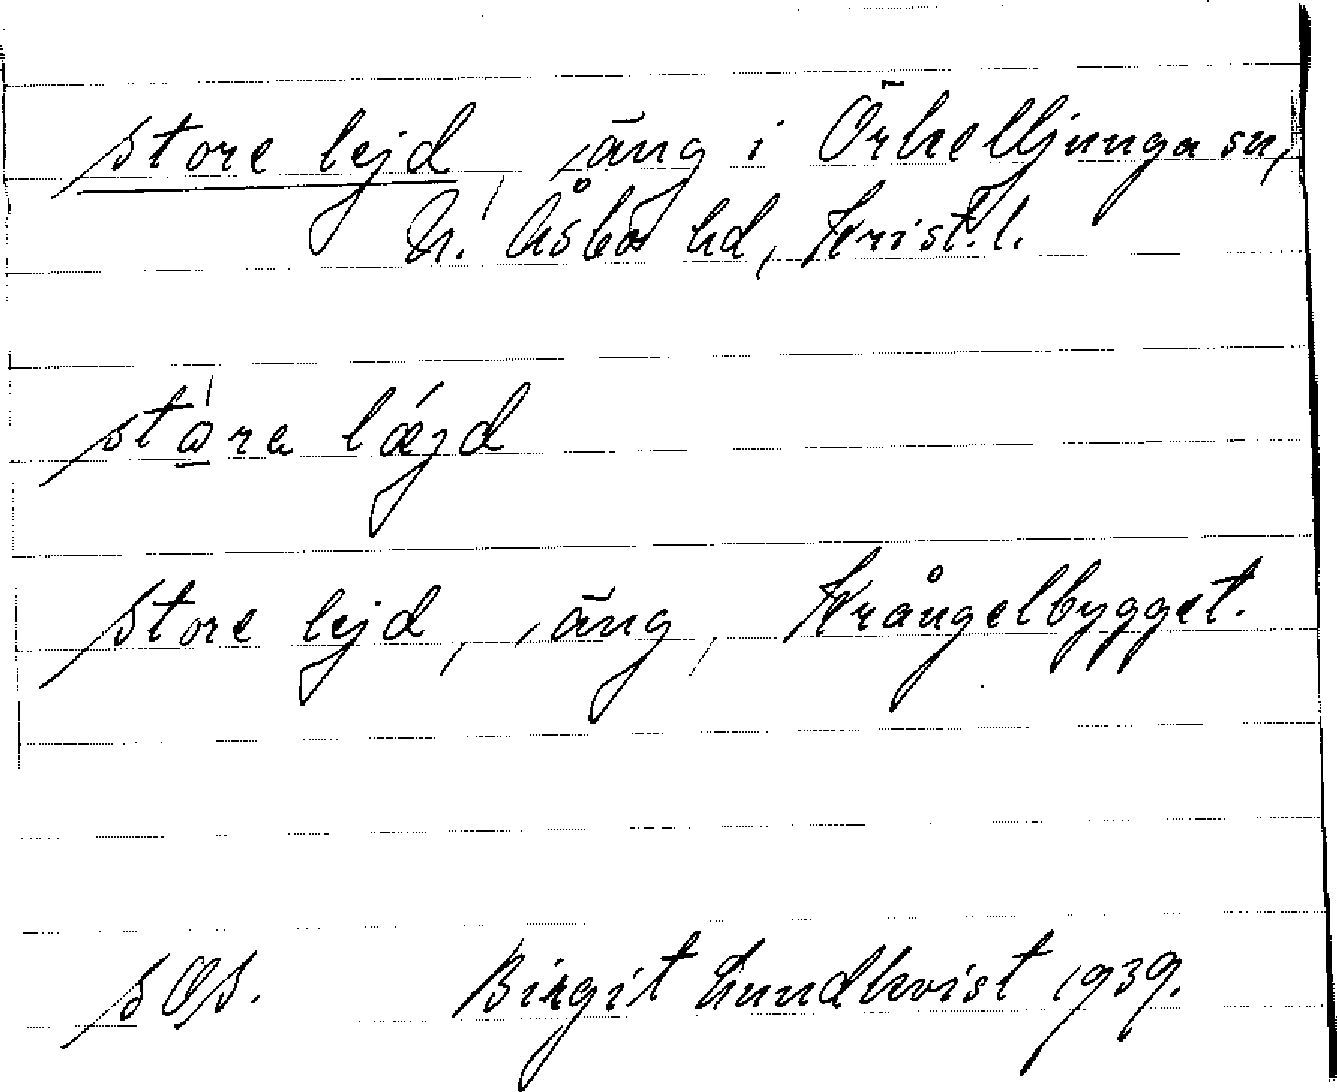 store lejd, äng i Örkelljunga sn,
N. Åsbo hd, Krist. l.
stǻra lǽjd
store lejd, äng, Krångelbygget.
sOs. Birgit Lundkvist 1939.